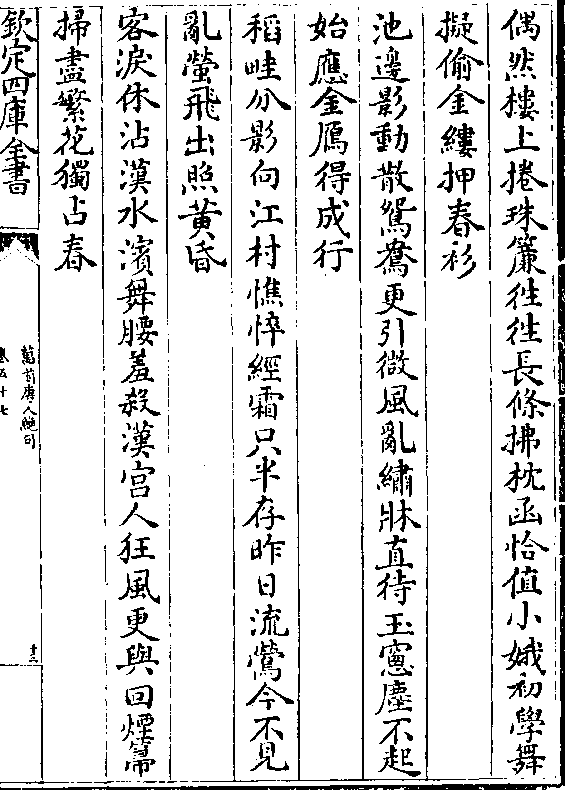 偶然樓上捲珠簾往往長條拂枕函恰值小娥初學舞
擬偷金縷押春衫
池邊影動散鴛鴦更引微風亂繡牀直待玉窻塵不起
始應金鴈得成行
稻畦分影向江村憔悴經霜只半存昨日流鶯今不見
亂螢飛出照黄昏
客淚休沾漢水濱舞腰羞殺漢宫人狂風更與回煙帚
掃盡繁花獨占春
欽定四庫全書
萬首唐人絶句
卷五十七
十三